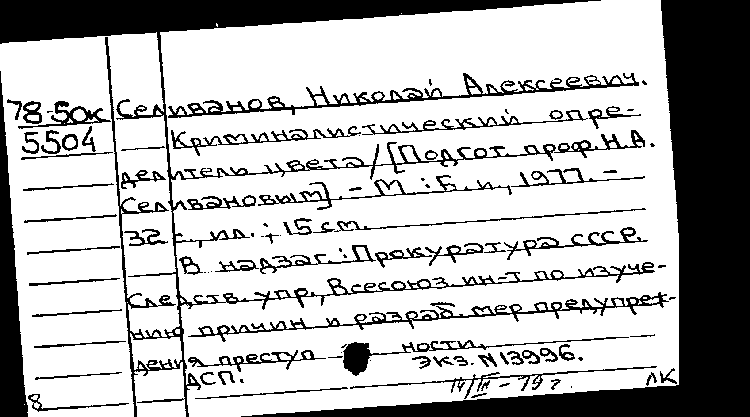 78-50к Селиванов, Николай Алексеевич.
5504 Криминалистический опре-
делитель цвета / [Подгот. проф. Н.А.
Селивановым]. - М.: Б. и., 1977. -
32 с., ил.; 15 см.
В надзаг.: Прокуратура СССР.
Следств. упр., Всесоюз. ин-т по изуче-
нию причин и разраб. мер предупреж-
дения преступ ности,
ДСП. ЭКЗ. N 13996.
8 IV/III - 79 г. ЛК